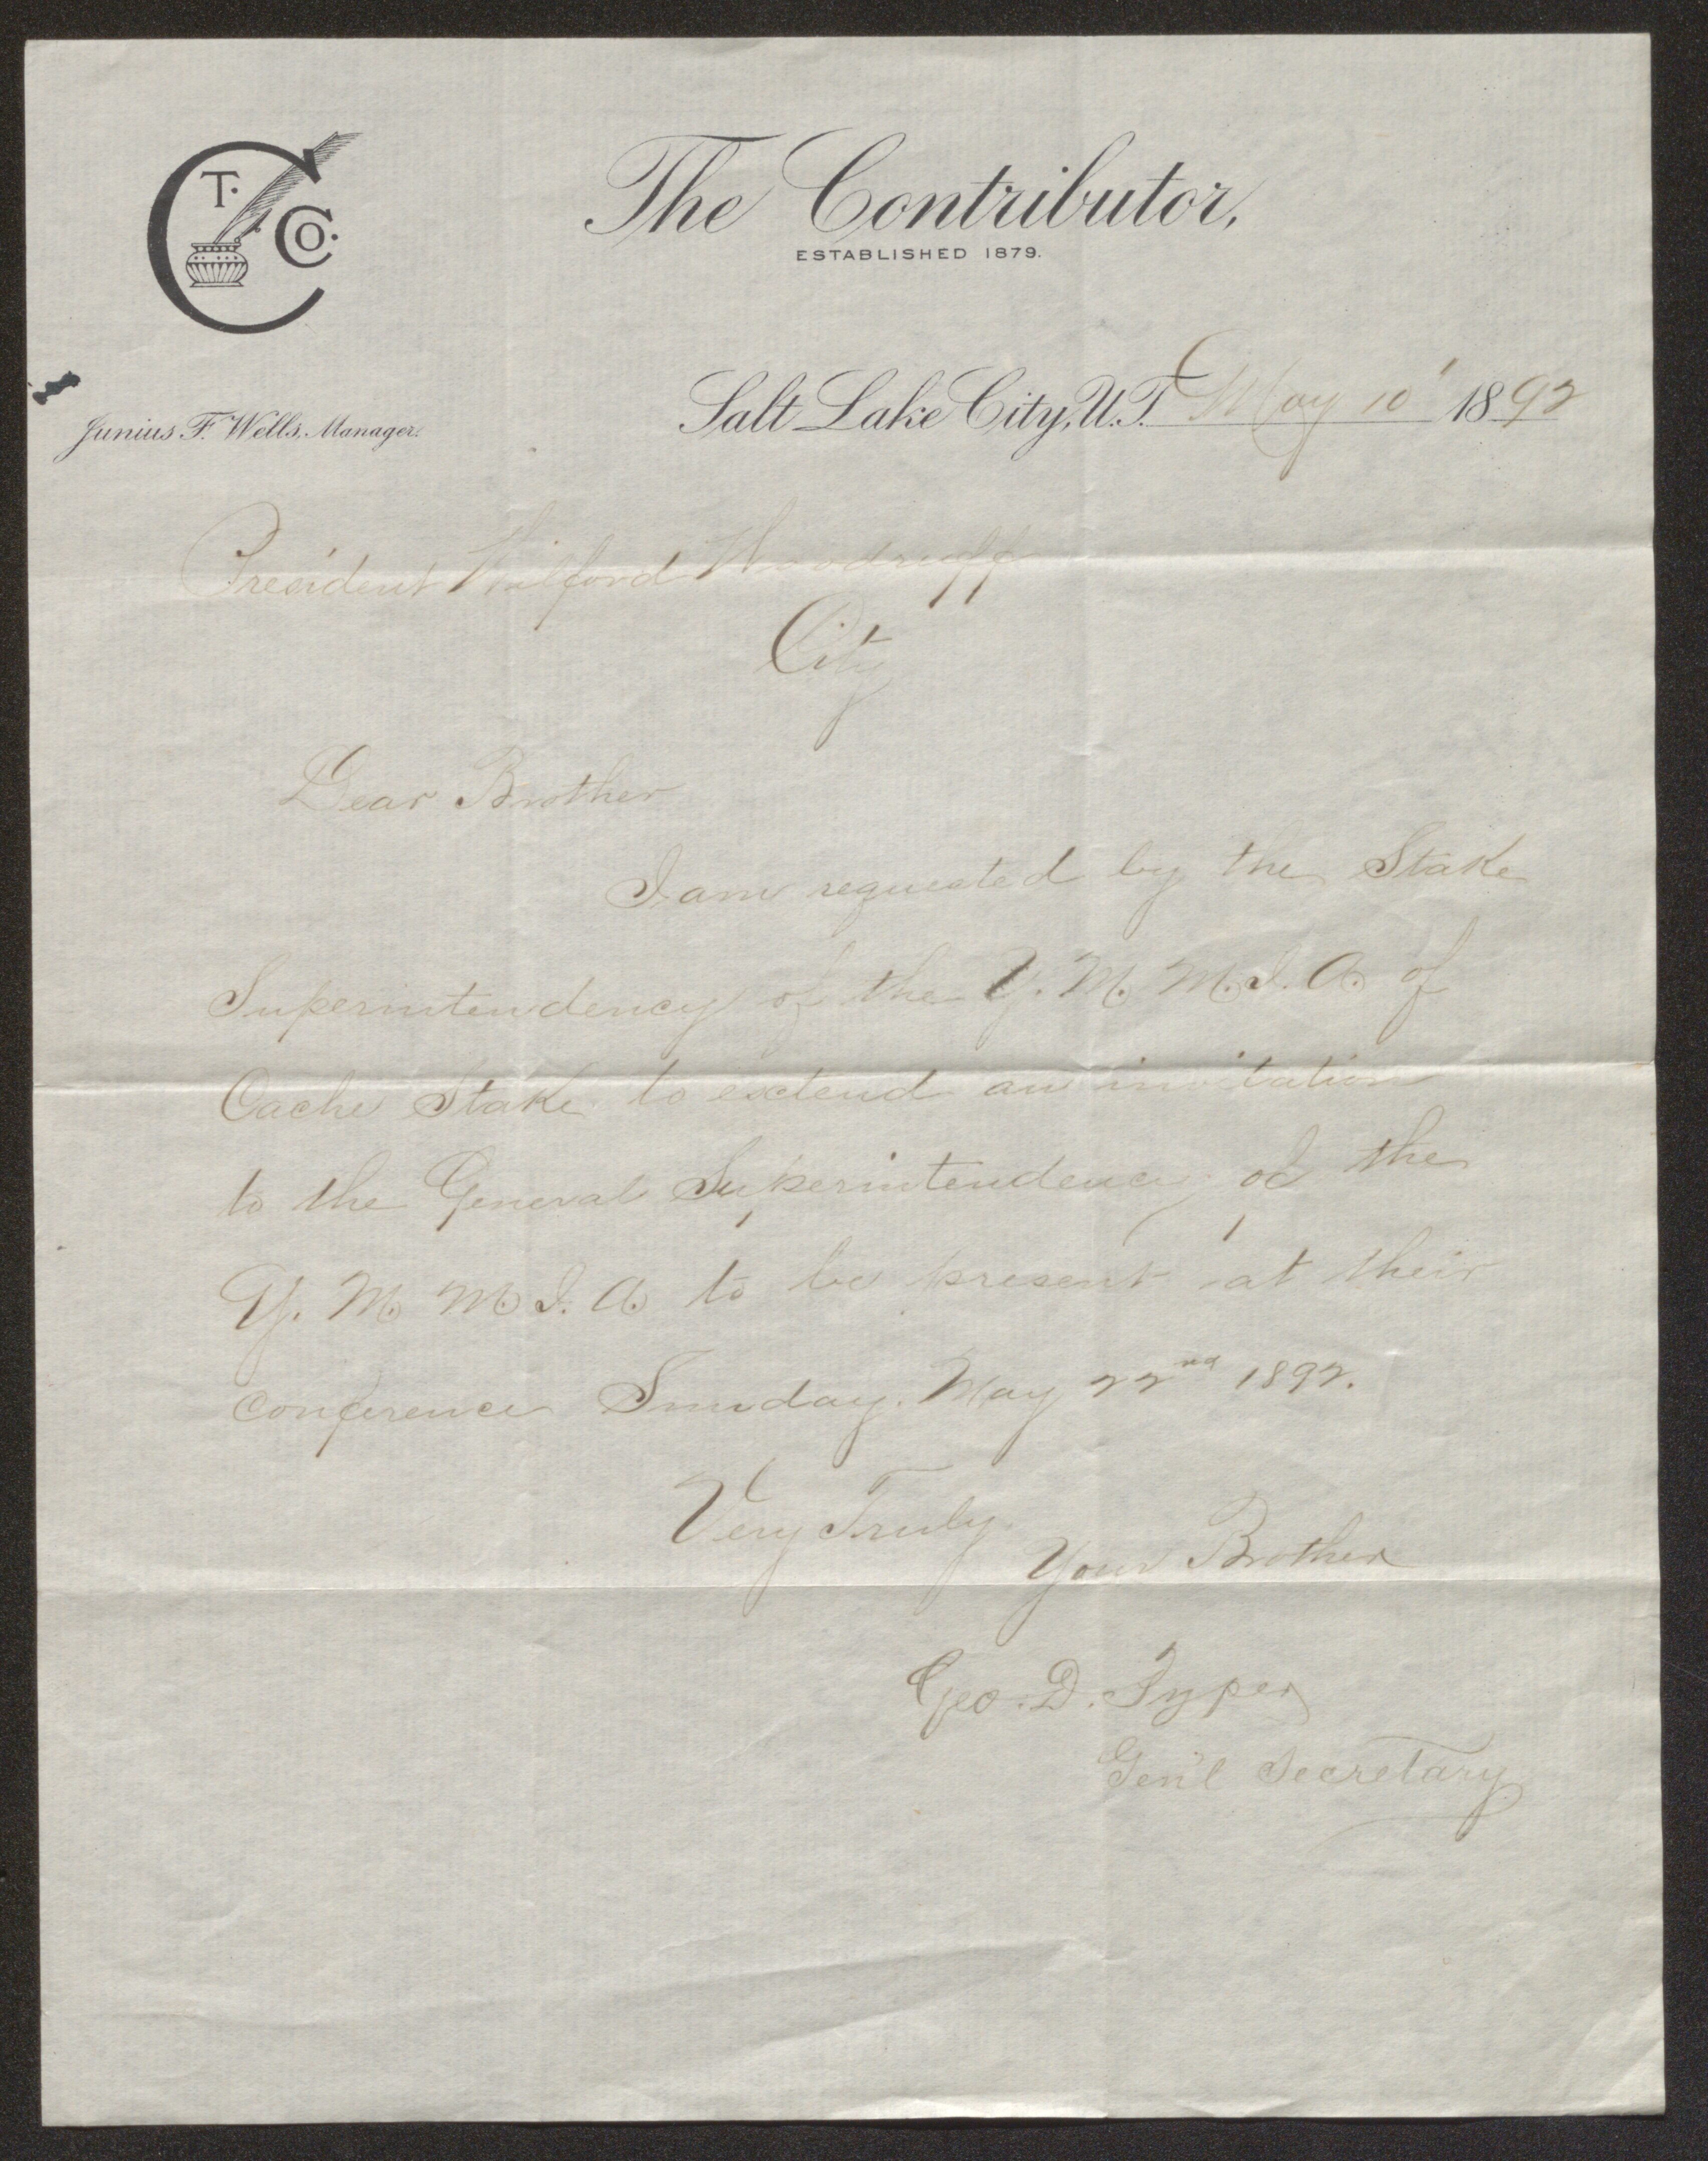 T. C. Co.
The Contributor,
ESTABLISHED 1879.
Junius F. Wells, Manager.
Salt Lake City, U.T. May 10' 1892
President Wilford Woodruff
City
Dear Brother
I am requested by the Stake
Superintendency of the Y. M. M. I. A. of
Cache Stake to extend an invitation
to the General Superintendency of the
Y. M. M. I. A. to be present at their
conference Sunday. May 22nd 1892.
Very Truly
Your Brother
Geo. D. Pyper
Gen'l Secretary